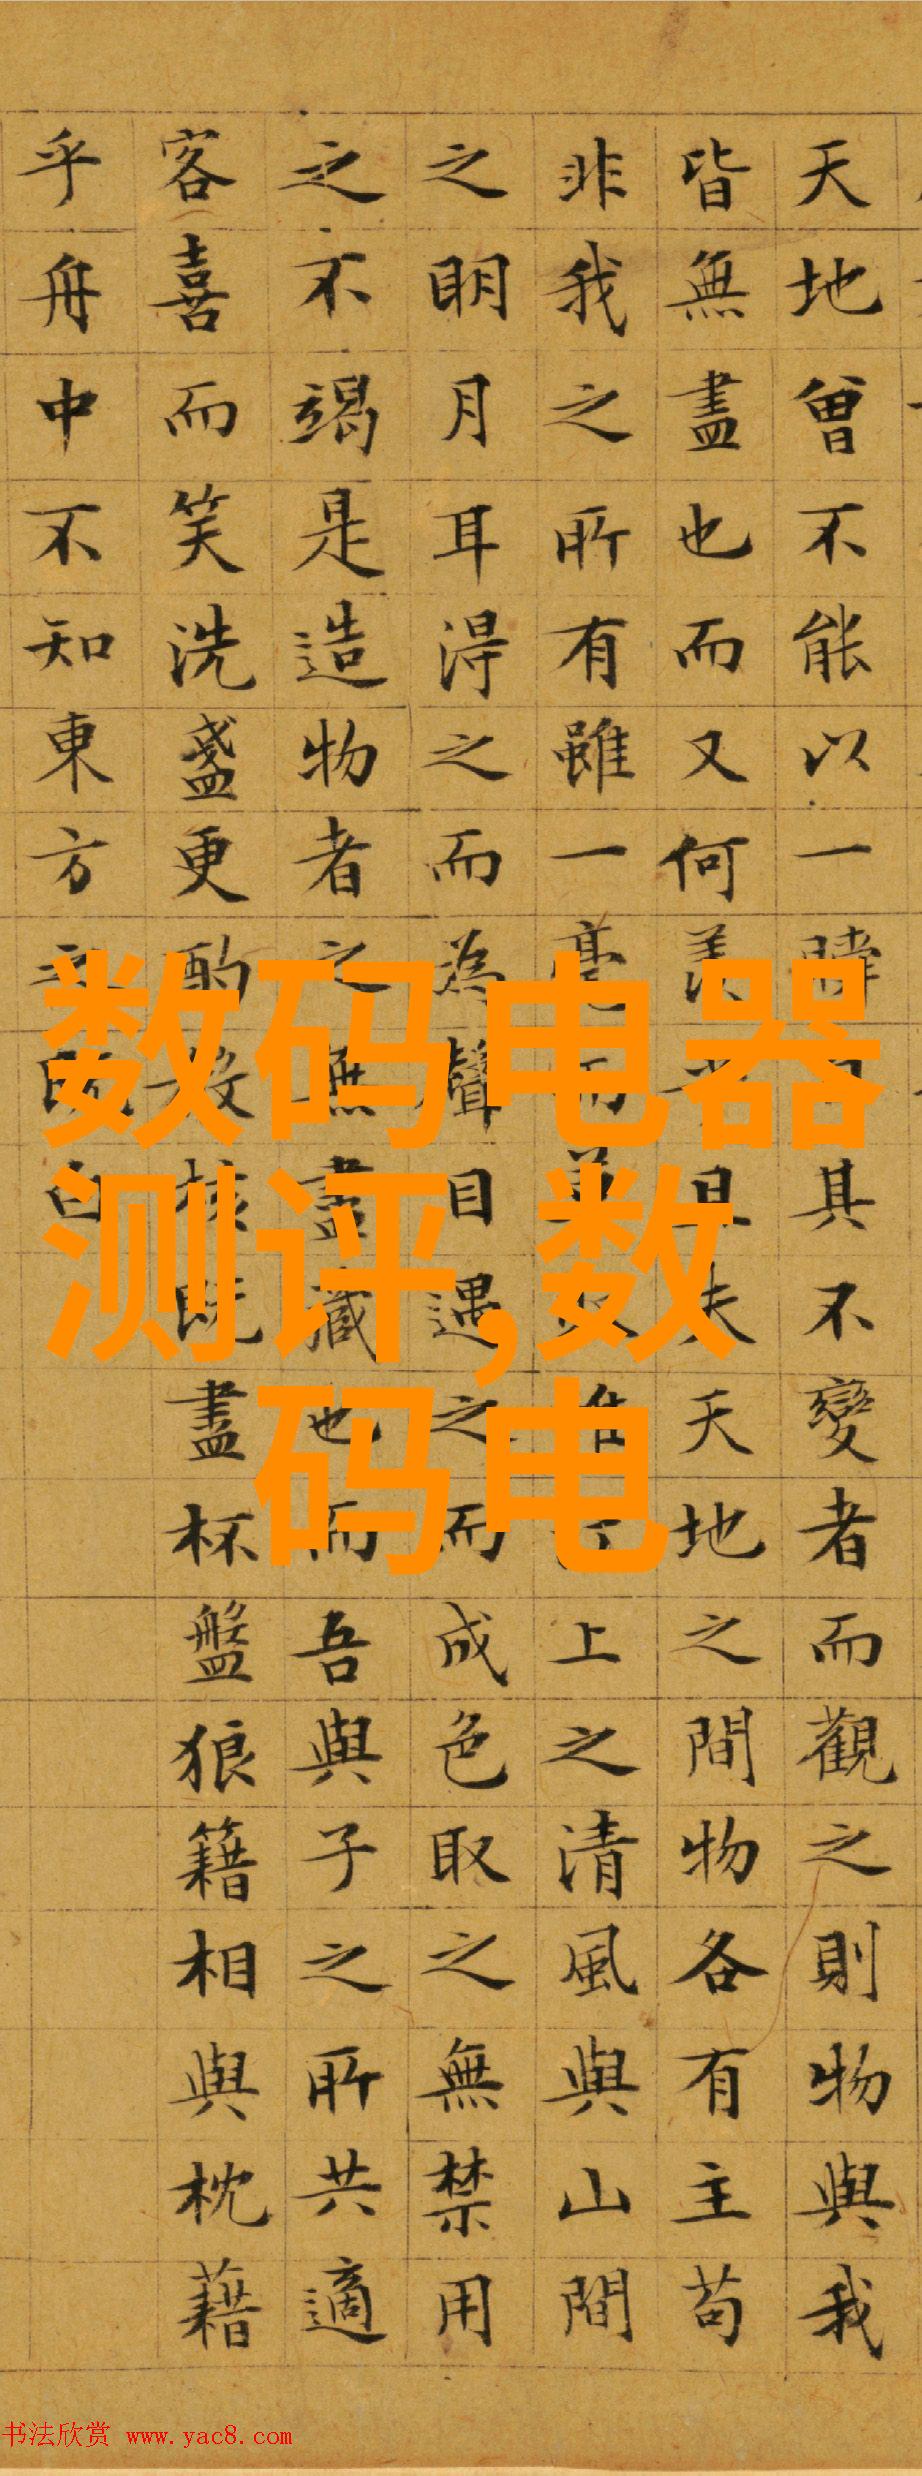 天地曾不能以一其不變者而觀之則物與我
皆無盡也而又何羨乎且夫天地之間物各有主苟
非我之所有雖一毫而上之清風與山間
之明月耳得之而為聲目遇之而成色取之無禁用
之不竭是造物者之無盡藏也而吾與子之所共適
客喜而笑洗盞更酌核既盡杯盤狼籍相與枕藉
乎舟中不知東方之既白
数码电器
测评,数
码电
书法欣赏 www.yac8.com